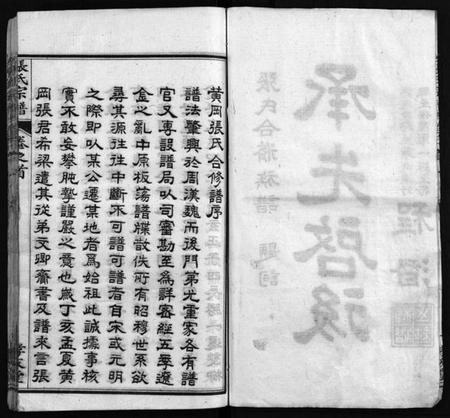 承先啓後
張氏合修族譜 題詞
程潛
黃岡張氏合修譜序
譜法肇興於周漢魏而後門第尤重家各有譜
官又專設譜局以司審勘至為詳密經五季遼
金之亂中原板蕩譜牒散佚所有昭穆世系欲
尋其源往往中斷不可譜可譜者自宋或元明
之際即以某公遷某地者為始祖此誠據事核
實不敢妄攀肫摯謹嚴之意也歲丁亥孟夏黃
岡張君希梁遣其從弟文卿齎書及譜來言張
張氏宗譜
卷之首
孝友堂